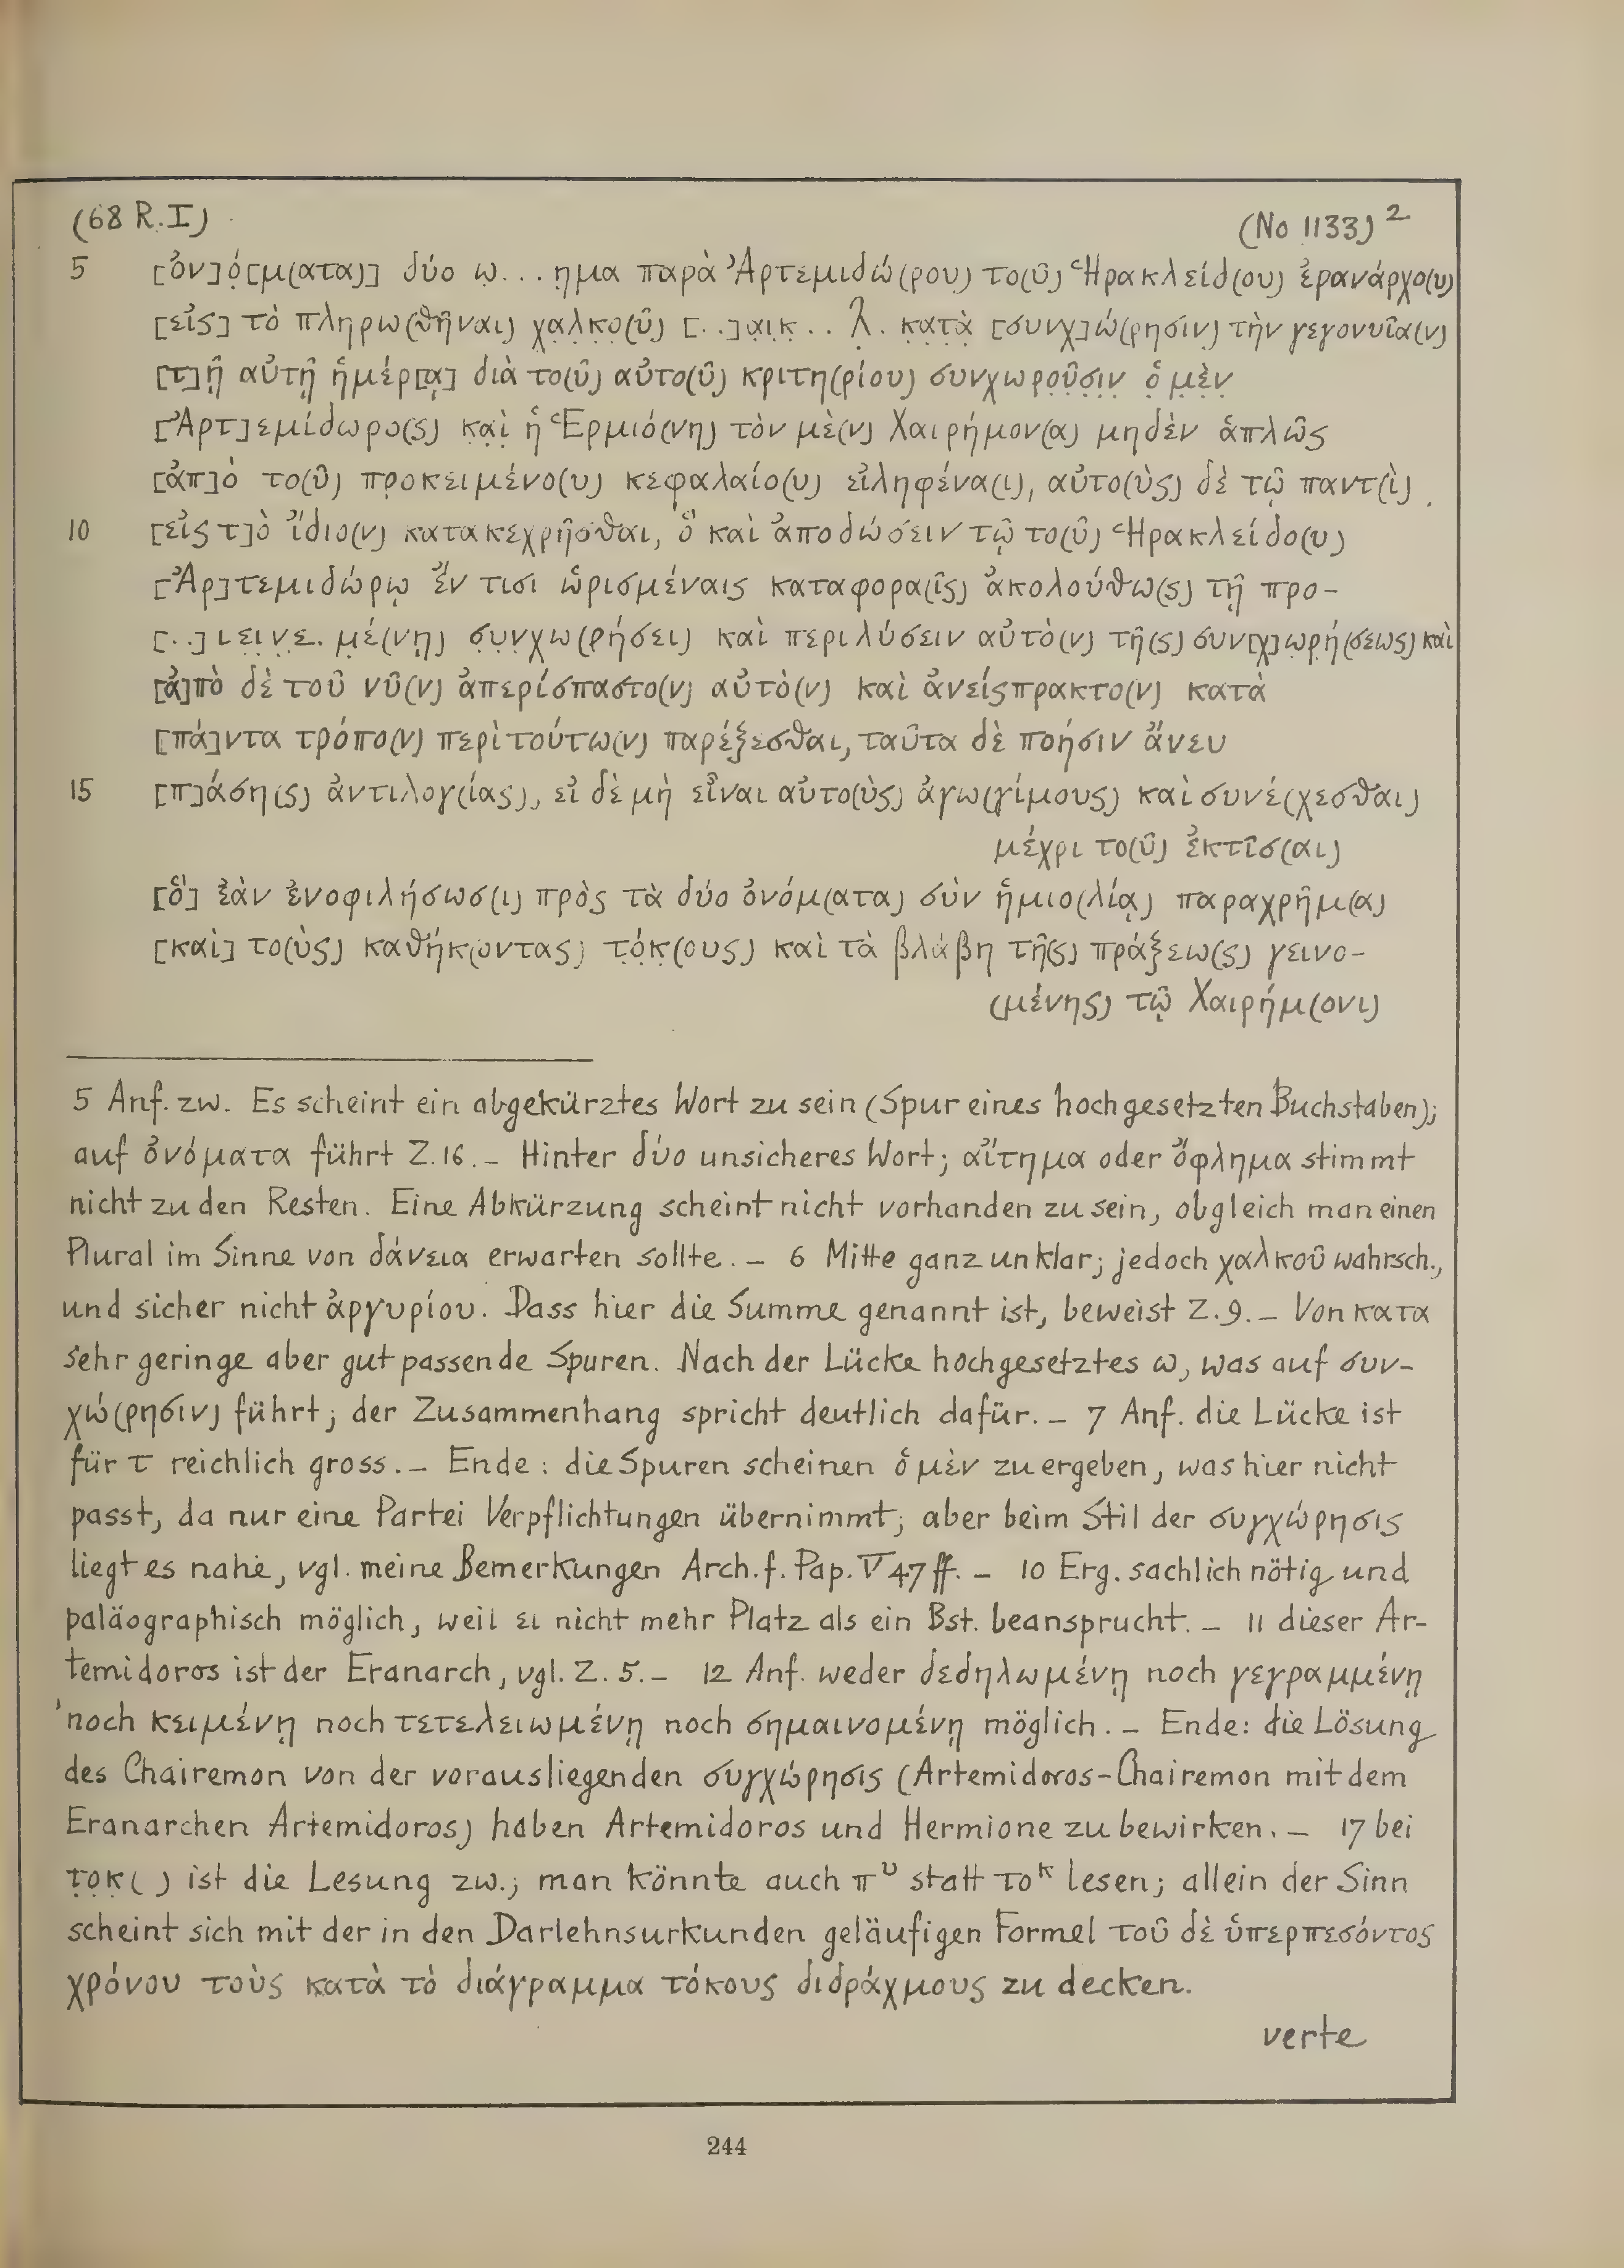 (68 R.I)
(No 1133) 2
5 [ὀν]ό̣[μ(ατα)] δύο ω̣...η̣μα παρὰ Ἀρτεμιδώ(ρου) το(ῦ) Ἡρακλείδ(ου) ἐρανάρχο(υ)
[εἰς] τὸ πληρω(θῆναι) χ̣α̣λ̣κ̣ο̣(ῦ) [..]α̣ι̣κ̣..λ̣. κ̣α̣τ̣ὰ̣ [συνχ]ώ(ρησιν) τὴν γεγονυῖα(ν)
[τ]ῇ αὐτῇ ἡμέρ[ᾳ] διὰ το(ῦ) αὐτο(ῦ) κριτη(ρίου) συνχωρο̣ῦ̣σ̣ι̣ν̣ ὁ̣ μ̣ὲ̣ν̣
[Ἀρτ]εμίδωρο(ς) κ̣α̣ὶ̣ ἡ Ἑρμιό(νη) τὸν μὲ(ν) Χαιρήμον(α) μηδὲν ἁπλῶς
[ἀπ]ὸ το(ῦ) προκειμένο(υ) κεφαλαίο(υ) εἰληφένα(ι), αὐτο(ὺς) δὲ τῷ παντ(ὶ)
10 [εἰς τ]ὸ ἴδιο(ν) κατακεχρῆσθαι, ὃ καὶ ἀποδώσειν τῷ το(ῦ) Ἡρακλείδο(υ)
[Ἀρ]τεμιδώρῳ ἔν τισι ὡρισμέναις καταφορα(ῖς) ἀκολούθω(ς) τῇ προ-
[..]ιε̣ι̣ν̣ε̣. μ̣έ(νῃ) σ̣υ̣ν̣χω(ρήσει) καὶ περιλύσειν αὐτὸ(ν) τῆ(ς) συν[χ]ω̣ρ̣ή(σεως) καὶ
[ἀ]πὸ δὲ τοῦ νῦ(ν) ἀπερίσπαστο(ν) αὐτὸ(ν) καὶ ἀνείςπρακτο(ν) κατὰ
[πά]ντα τρόπο(ν) περὶ τούτω(ν) παρέξεσθαι, ταῦτα δὲ ποήσιν ἄνευ
15 [π]άση(ς) ἀντιλογ(ίας), εἰ δὲ μὴ εἶναι αὐτο(ὺς) ἀγω(γίμους) καὶ συνέ(χεσθαι)
μέχρι το(ῦ) ἐκτῖσ(αι)
[ὃ] ἐὰν ἐνοφιλήσωσ(ι) πρὸς τὰ δύο ὀνόμ(ατα) σὺν ἡμιο(λίᾳ) παραχρῆμ(α)
[καὶ] το(ὺς) καθήκ(οντας) τ̣ό̣κ̣(ους) καὶ τὰ βλάβη τῆ(ς) πράξεω(ς) γεινο-
(μένης) τῷ Χαιρήμ(ονι)
5 Anf. zw. Es scheint ein abgekürztes Wort zu sein (Spur eines hochgesetzten Buchstaben);
auf ὀνόματα führt Z.16. _ Hinter δύο unsicheres Wort; αἴτημα oder ὄφλημα stimmt
nicht zu den Resten. Eine Abkürzung scheint nicht vorhanden zu sein, obgleich man einen
Plural im Sinne von δάνεια erwarten sollte. _ 6 Mitte ganz unklar; jedoch χαλκοῦ wahrsch.,
und sicher nicht ἀργυρίου. Dass hier die Summe genannt ist, beweist Z.9. _ Von κατα
sehr geringe aber gut passende Spuren. Nach der Lücke hochgesetztes ω, was auf συν-
χώ(ρησιν) führt; der Zusammenhang spricht deutlich dafür. _ 7 Anf. die Lücke ist
für τ reichlich gross. _ Ende: die Spuren scheinen ὁ μὲν zu ergeben, was hier nicht
passt, da nur eine Partei Verpflichtungen übernimmt; aber beim Stil der συγχώρησις
liegt es nahe, vgl. meine Bemerkungen Arch. f. Pap. V 47 ff. _ 10 Erg. sachlich nötig und
paläographisch möglich, weil ει nicht mehr Platz als ein Bst. beansprucht. _ 11 dieser Ar-
temidoros ist der Eranarch, vgl. Z. 5. _ 12 Anf. weder δεδηλωμένῃ noch γεγραμμένῃ
noch κειμένῃ noch τετελειωμένῃ noch σημαινομένῃ möglich. _ Ende: die Lösung
des Chairemon von der vorausliegenden συγχώρησις (Artemidoros-Chairemon mit dem
Eranarchen Artemidoros) haben Artemidoros und Hermione zu bewirken. _ 17 bei
τ̣ο̣κ̣( ) ist die Lesung zw.; man könnte auch πᵛ statt τοᵏ lesen; allein der Sinn
scheint sich mit der in den Darlehnsurkunden geläufigen Formel τοῦ δὲ ὑπερπεσόντος
χρόνου τοὺς κατὰ τὸ διάγραμμα τόκους διδράχμους zu decken.
verte
244